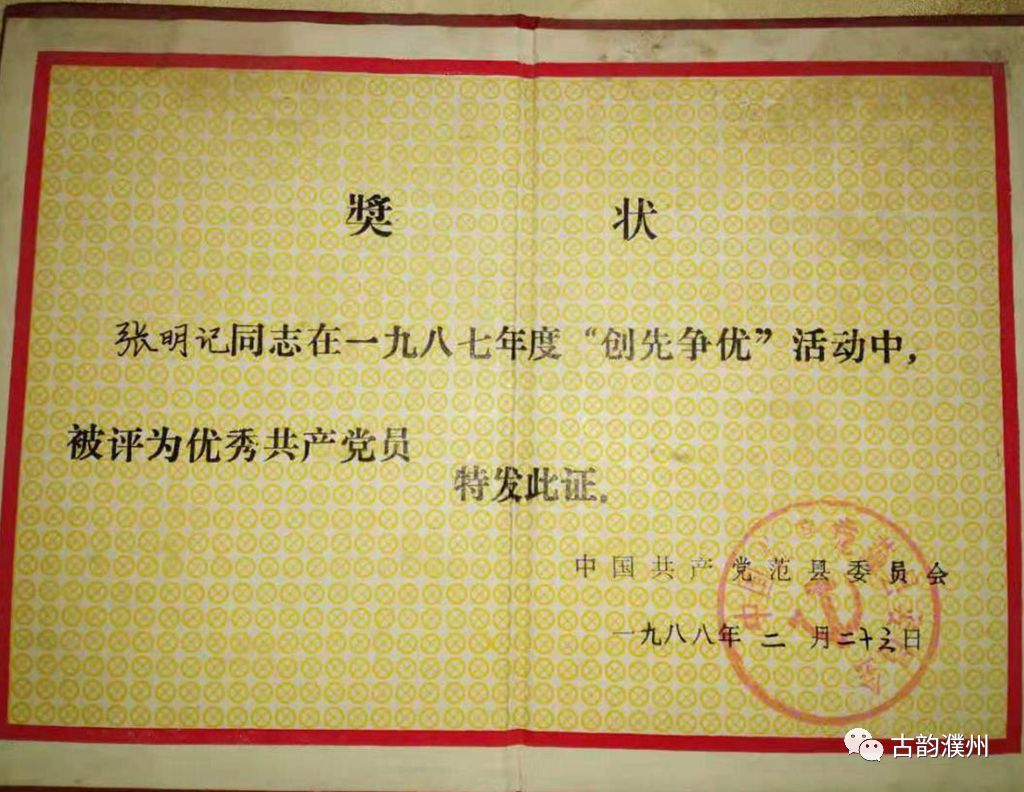 奬 状
张明记同志在一九八七年度“创先争优”活动中，
被评为优秀共产党员
特发此证。
中国共产党范县委员会
一九八八年二月二十三日
古韵濮州